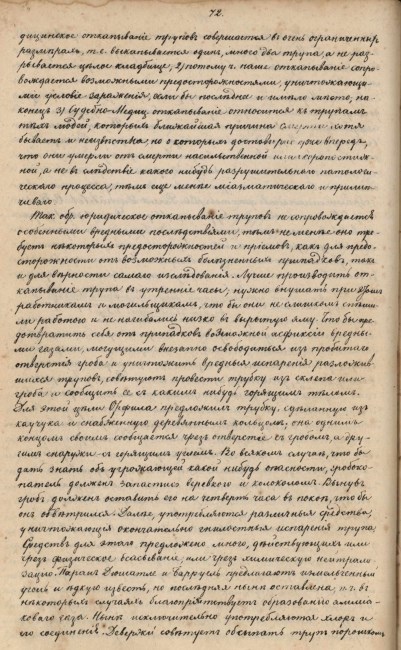 72.
дицинское откапываніе труповъ совершается въ очень ограниченныхъ
размѣрахъ, т. е. выкапывается одинъ, много два трупа, а не раз-
рывается цѣлое кладбище, 2) потому ч. наше откапываніе сопро-
вождается возможными предосторожностями, уничтожающи-
ми условіе зараженія, если бы послѣднее и имѣло мѣсто, на-
конецъ 3) судебно-Медиц. откапываніе относится къ трупамъ
тѣхъ людей, которыхъ ближайшая причина смерти хотя
бываетъ и неизвѣстна, но о которыхъ достовѣрно уже впередъ,
что они умерли отъ смерти насильственной или скоропостиж-
ной, а не въ слѣдствіе какого нибудь разрушительнаго патологи-
ческаго процесса, тѣмъ еще менѣе міазматическаго и прилип-
чиваго.
Такъ обр. юридическое откапываніе труповъ не сопровождается
особенными вредными послѣдствіями, тѣмъ не менѣе оно тре-
буетъ нѣкоторыхъ предосторожностей и пріемовъ, какъ для предо-
сторожности отъ возможныхъ болѣзненныхъ припадковъ, такъ
и для вѣрности самаго изслѣдованія. Лучше производить от-
капываніе трупа въ утренніе часы, нужно внушать при этомъ
работникамъ и могильщикамъ, что бы они не слишкомъ спѣши-
ли работою и не нагибались низко въ вырытую яму. Что бы пре-
дотвратить себя отъ припадковъ возможной асфиксіи вредны-
ми газами, могущими внезапно освободиться изъ пробитаго
отверстія гроба и уничтожить вредныя испаренія разложив-
шихся труповъ, совѣтуютъ провести трубку изъ склепа или
гроба и сообщить ее съ какимъ нибудь горящимъ тѣломъ.
Для этой цѣли Орфила предложилъ трубку, сдѣланную изъ
каучука и снабженную деревяннымъ кольцомъ, она однимъ
концомъ своимъ сообщается чрезъ отверстіе съ гробомъ, а дру-
гимъ снаружи съ горящимъ углемъ. Во всякомъ случаѣ, что бы
дать знать объ угрожающей какой нибудь опасности, гробоко-
патель долженъ запастись веревкою и колоколомъ. Вынувъ
гробъ должно оставить его на четверть часа въ покоѣ, что бы
онъ обвѣтрился. Далѣе, употребляются различныя средства,
уничтожающія окончательно гнилостныя испаренія трупа.
Средствъ для этого предложено много, дѣйствующихъ или
чрезъ физическое всасываніе, или чрезъ химическую нейтрали-
зацію. Паранъ Дюшатле и Барруэль предлагаютъ измельченный
уголь и ѣдкую известь, но послѣдняя нынѣ оставлена, п. т. въ
некоторыхъ случаяхъ благопріятствуетъ образованію амміа-
коваго газа. Нынѣ исключительно употребляются хлоръ и
его соединенія. Девержи совѣтуетъ обсыпать трупъ порошкомъ